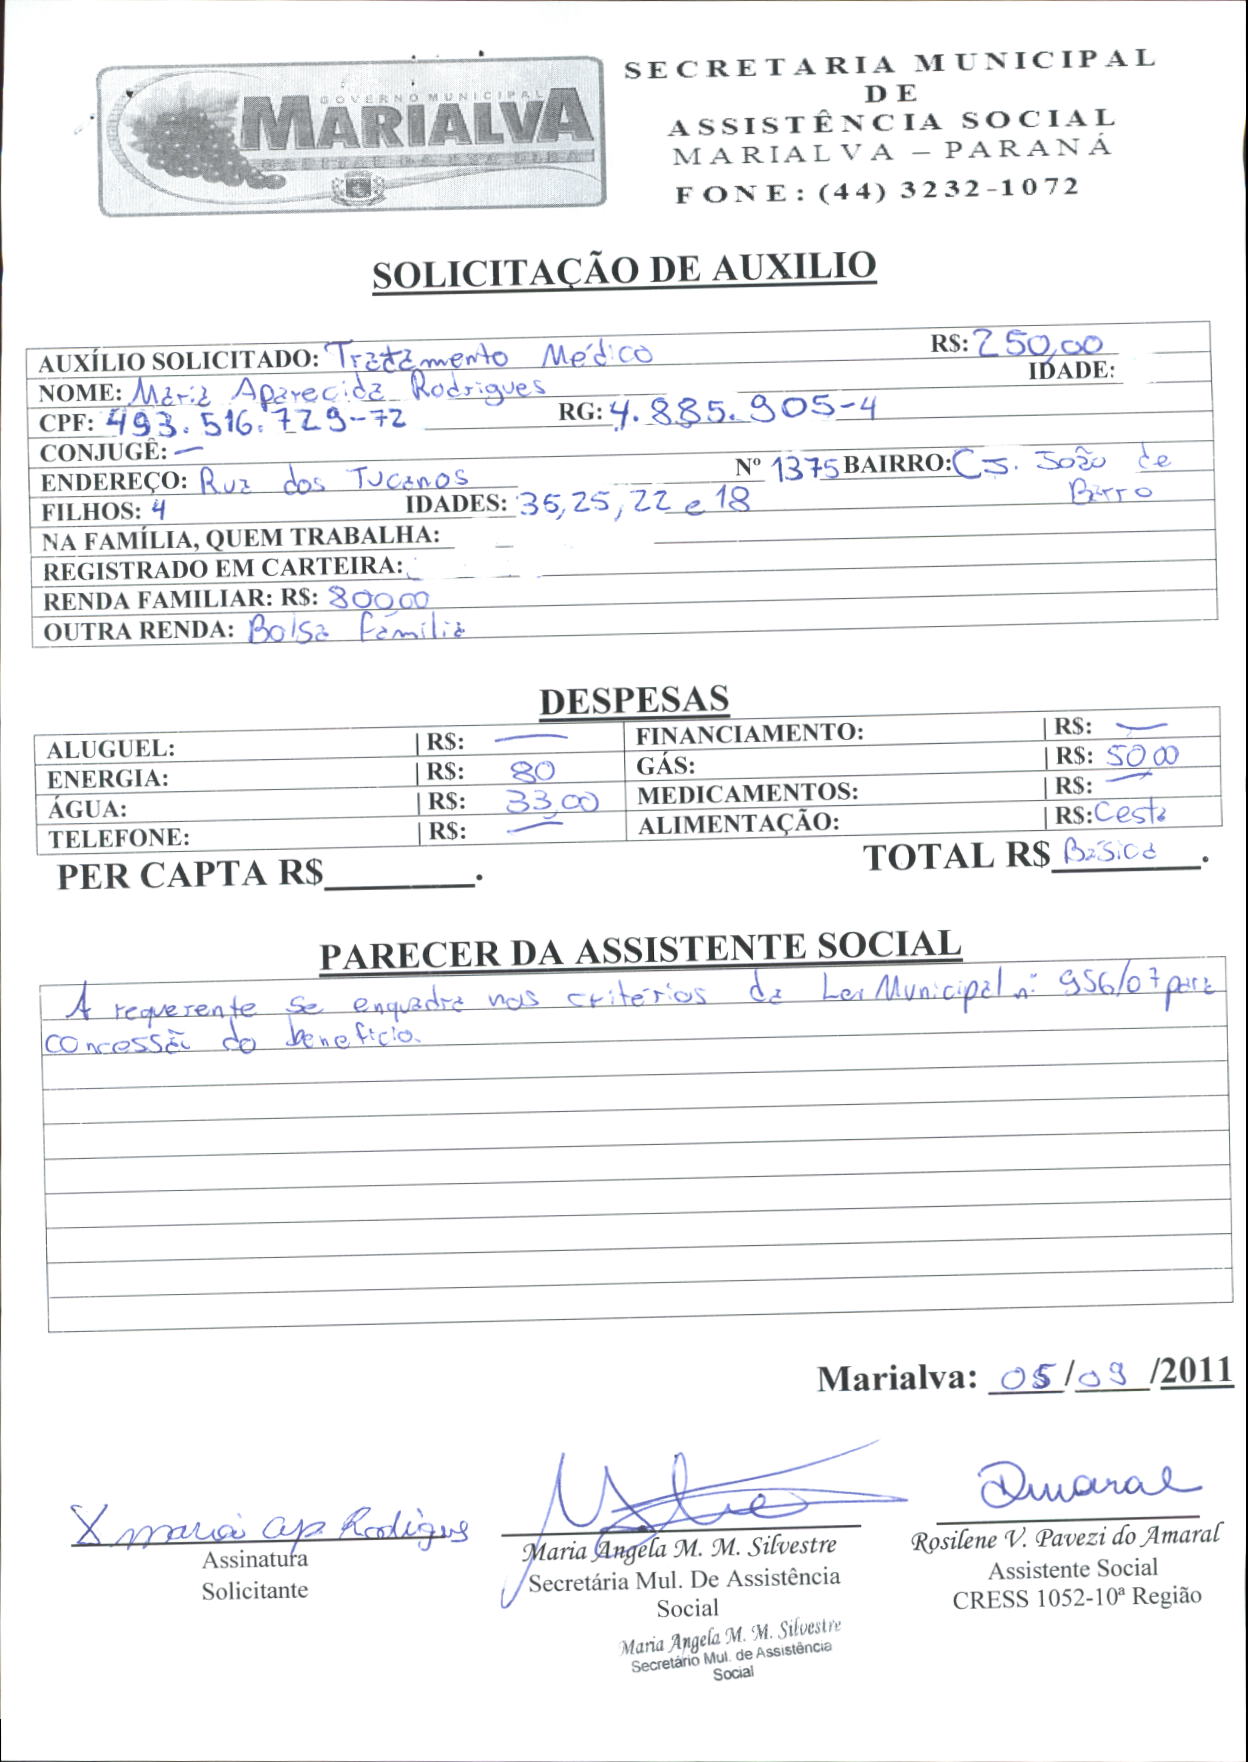 GOVERNO MUNICIPAL
MARIALVA
CAPITAL DA UVA FINA!
SECRETARIA MUNICIPAL
DE
ASSISTÊNCIA SOCIAL
MARIALVA – PARANÁ
FONE: (44) 3232-1072
SOLICITAÇÃO DE AUXILIO
AUXÍLIO SOLICITADO: Tratamento Médico R$: 250,00
NOME: Maria Aparecida Rodrigues IDADE:
CPF: 493.516.729-72 RG: 4.885.905-4
CONJUGÊ: —
ENDEREÇO: Rua dos Tucanos Nº 1375 BAIRRO: CJ. João de
Barro
FILHOS: 4 IDADES: 35, 25, 22 e 18
NA FAMÍLIA, QUEM TRABALHA: —
REGISTRADO EM CARTEIRA:
RENDA FAMILIAR: R$: 80000
OUTRA RENDA: Bolsa Família
DESPESAS
ALUGUEL: | R$: — FINANCIAMENTO: | R$: —
ENERGIA: | R$: 80 GÁS: | R$: 50,00
ÁGUA: | R$: 33,00 MEDICAMENTOS: | R$: —
TELEFONE: | R$: — ALIMENTAÇÃO: | R$: Cesta
PER CAPTA R$________. TOTAL R$ Básica.
PARECER DA ASSISTENTE SOCIAL
A requerente se enquadra nos critérios da Lei Municipal nº 956/07 para
concessão do beneficio.
Marialva: 05/09/2011
X Maria Ap Rodrigues
Assinatura
Solicitante
Maria Angela M. M. Silvestre
Secretária Mul. De Assistência
Social
Maria Angela M. M. Silvestre
Secretário Mul. de Assistência
Social
Amaral
Rosilene V. Pavezi do Amaral
Assistente Social
CRESS 1052-10ª Região